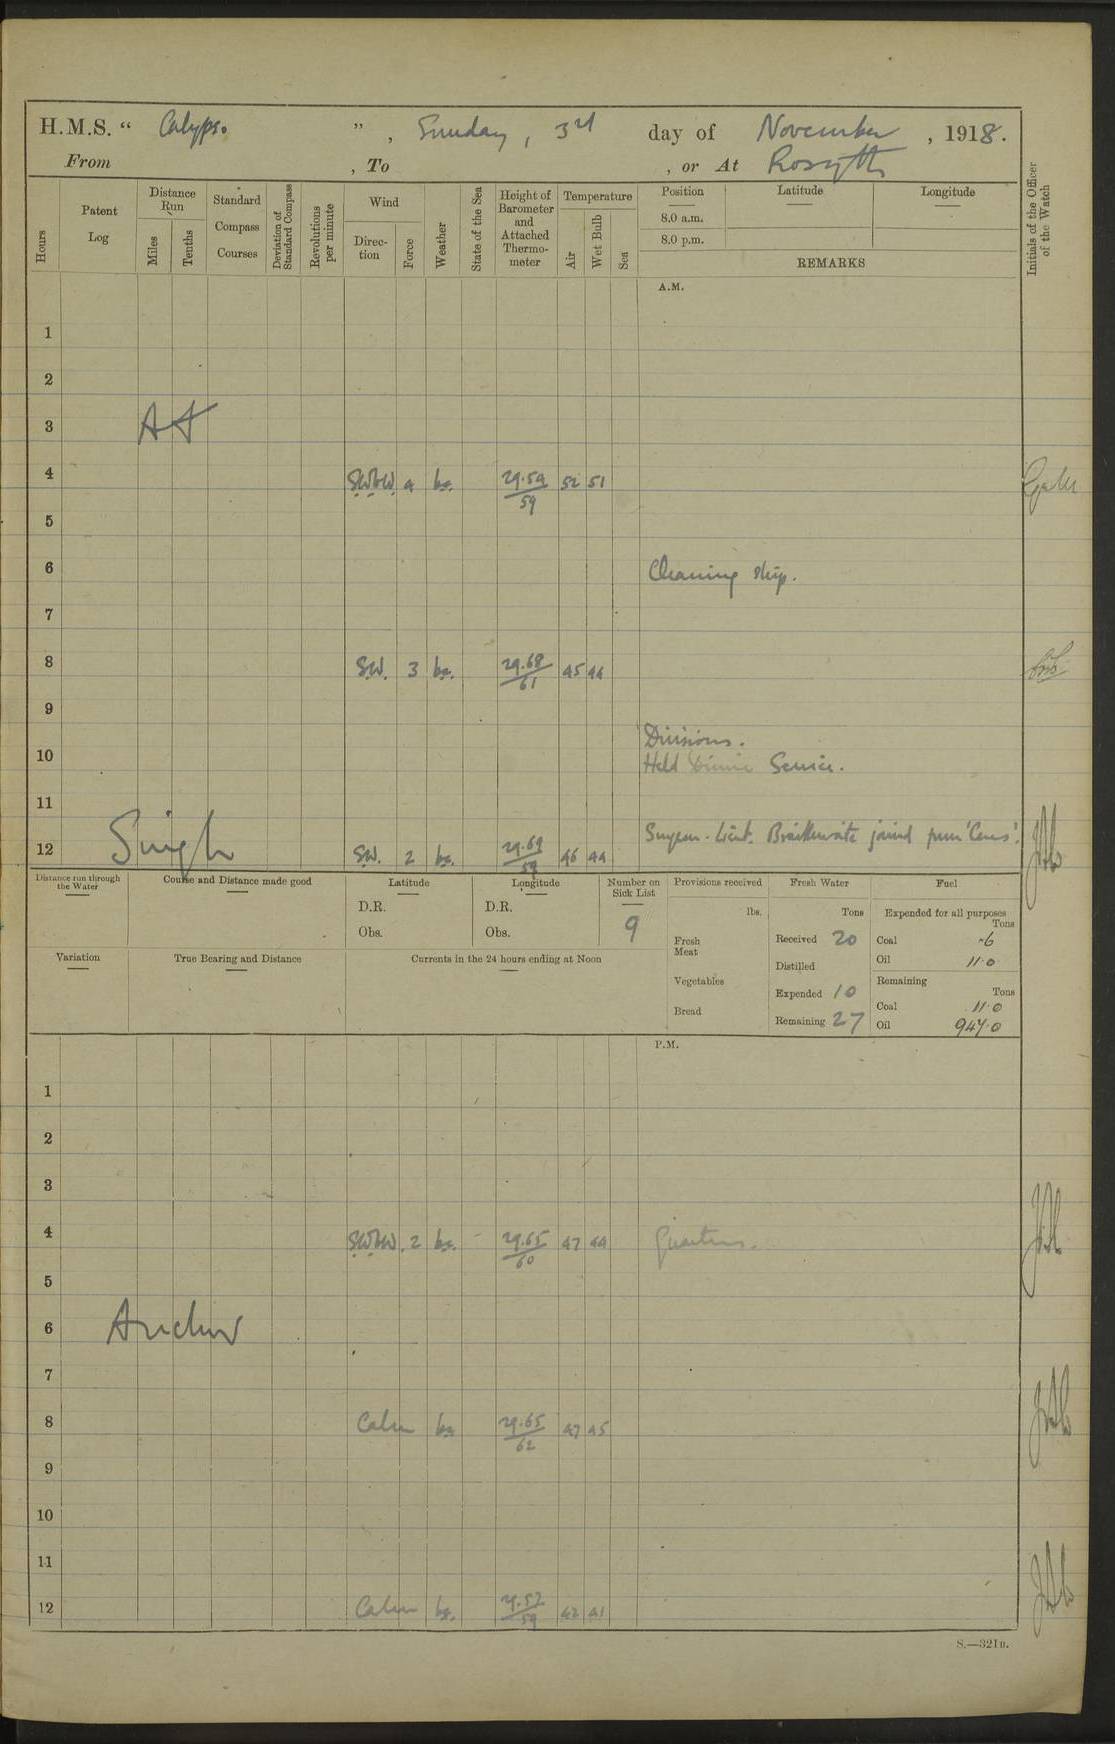 H.M.S. “ Calypso ” , Sunday, 3rd day of November , 1918.
From , To , or At Rosyth
Hours
Patent Log
Distance Run
Miles
Tenths
Standard Compass Courses
Deviation of Standard Compass
Revolutions per minute
Wind
Direc-tion
Force
Weather
State of the Sea
Height of Barometer and Attached Thermo-meter
Temperature
Air
Wet Bulb
Sea
Position Latitude Longitude
8.0 a.m.
8.0 p.m.
REMARKS
Initials of the Officer of the Watch
A.M.
1
2
3 At
4 S.W.b.W. 4 bc. 29.54/59 52 51
5
6 Cleaning ship.
7
8 S.W. 3 bc. 29.68/61 45 44
9
Divisions.
10 Held Divine Service.
11
Surgeon-Lieut. Braithwaite joined from 'Ceres'.
12 Single S.W. 2 bc. 29.69/59 46 44
Distance run through the Water
Course and Distance made good
Latitude
D.R.
Obs.
Longitude
D.R.
Obs.
Number on Sick List
9
Provisions received
lbs.
Fresh Meat
Vegetables
Bread
Fresh Water
Tons
Received 20
Distilled
Expended 10
Remaining 27
Fuel
Expended for all purposes
Tons
Coal ·6
Oil 11·0
Remaining
Tons
Coal 11·0
Oil 947·0
Variation
True Bearing and Distance
Currents in the 24 hours ending at Noon
P.M.
1
2
3
4 S.W.b.W. 2 bc. - 29.65/60 47 44 Quarters.
5
6 Anchor
7
8 Calm bc. 29.65/62 47 45
9
10
11
12 Calm bc. 29.57/59 42 41
S.—321B.